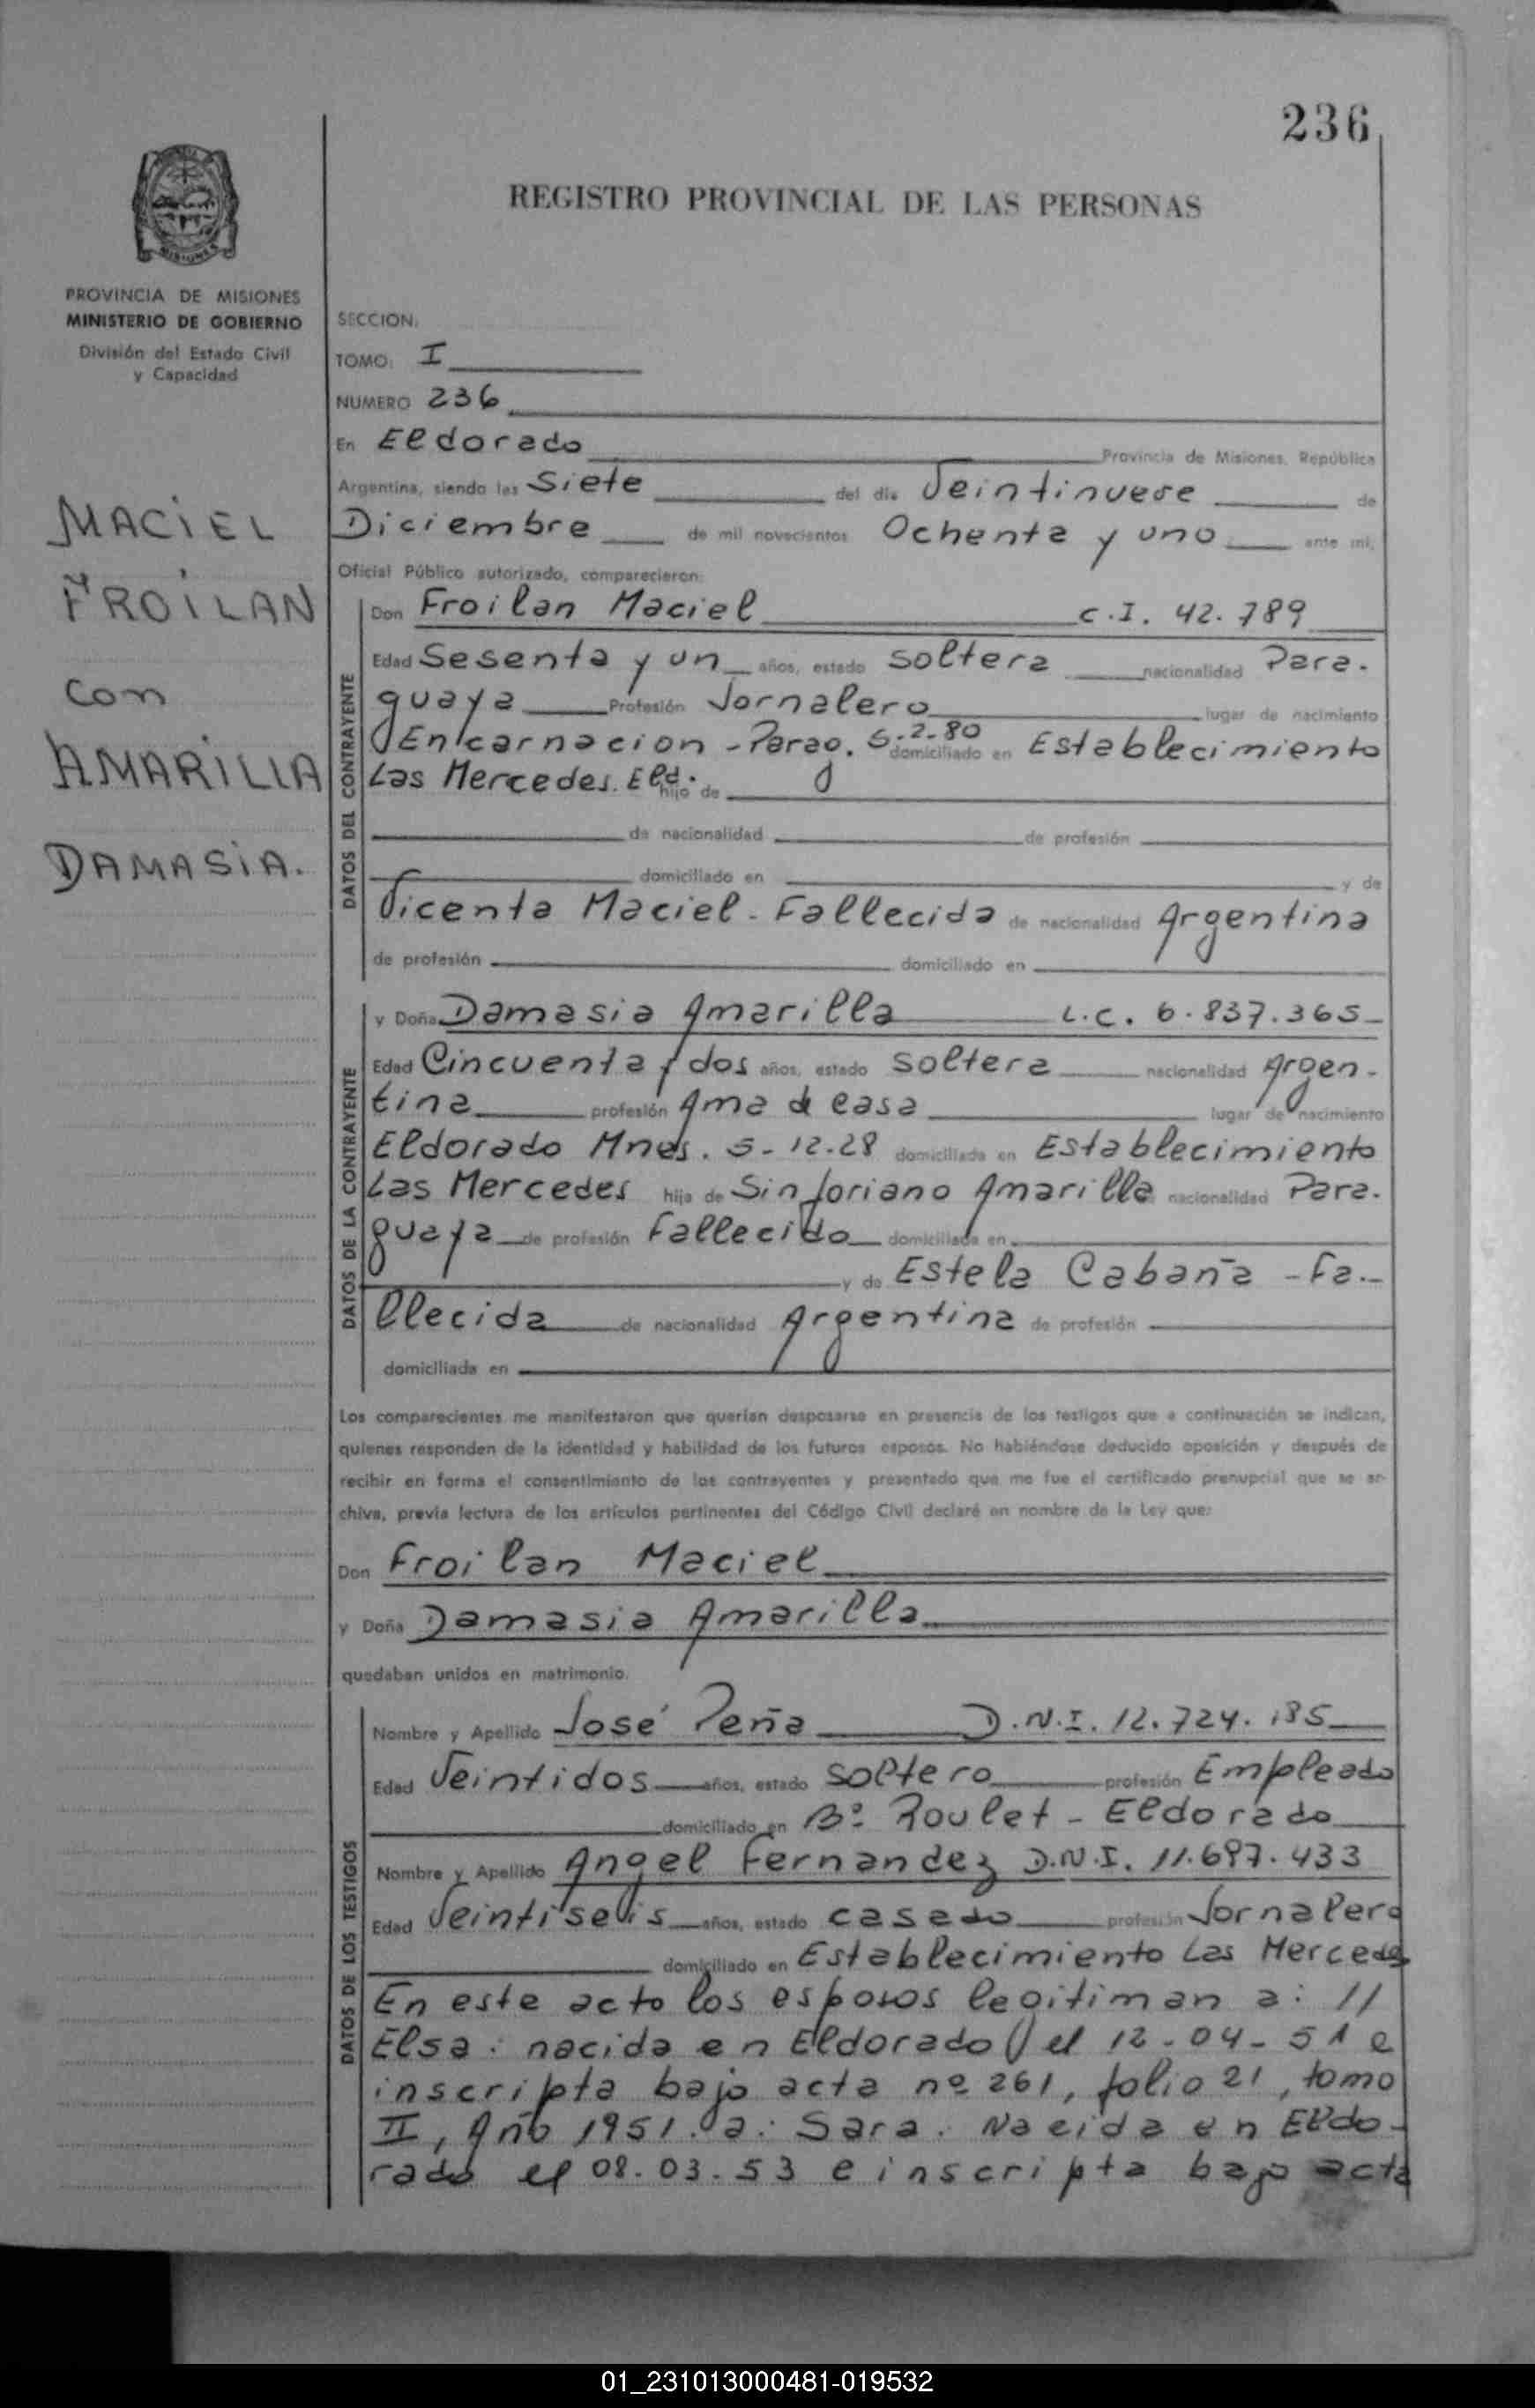 236
REGISTRO PROVINCIAL DE LAS PERSONAS
MISIONES
PROVINCIA DE MISIONES
MINISTERIO DE GOBIERNO
División del Estado Civil
y Capacidad
MACIEL
FROILAN
con
AMARILLA
DAMASIA.
SECCION:
TOMO: I
NUMERO 236
En Eldorado Provincia de Misiones, República
Argentina, siendo las Siete del día Veintinueve de
Diciembre de mil novecientos Ochenta y uno ante mí,
Oficial Público autorizado, comparecieron:
DATOS DEL CONTRAYENTE
Don Froilan Maciel C.I. 42.789
Edad Sesenta y un años, estado soltera nacionalidad Para-
guaya Profesión Jornalero lugar de nacimiento
Encarnacion - Parag. 5-2-80 domiciliado en Establecimiento
Las Mercedes. Eld. hijo de
de nacionalidad de profesión
domiciliado en y de
Vicenta Maciel - Fallecida de nacionalidad Argentina
de profesión domiciliado en
DATOS DE LA CONTRAYENTE
y Doña Damasia Amarilla L.C. 6.837.365
Edad Cincuenta y dos años, estado soltera nacionalidad Argen-
tina profesión Ama de casa lugar de nacimiento
Eldorado Mnes. 5-12-28 domiciliada en Establecimiento
Las Mercedes hija de Sinforiano Amarilla nacionalidad Para-
guaya de profesión Fallecido domiciliada en
y de Estela Cabaña - Fa-
llecida de nacionalidad Argentina de profesión
domiciliada en
Los comparecientes me manifestaron que querían desposarse en presencia de los testigos que a continuación se indican,
quienes responden de la identidad y habilidad de los futuros esposos. No habiéndose deducido oposición y después de
recibir en forma el consentimiento de los contrayentes y presentado que me fue el certificado prenupcial que se ar-
chiva, previa lectura de los artículos pertinentes del Código Civil declaré en nombre de la Ley que:
Don Froilan Maciel
y Doña Damasia Amarilla
quedaban unidos en matrimonio.
DATOS DE LOS TESTIGOS
Nombre y Apellido José Peña D.N.I. 12.724.185
Edad Veintidos años, estado soltero profesión Empleado
domiciliado en Bº Roulet - Eldorado
Nombre y Apellido Angel Fernandez D.N.I. 11.697.433
Edad Veintiseis años, estado casado profesión Jornalero
domiciliado en Establecimiento Las Mercedes
En este acto los esposos legitiman a: //
Elsa: nacida en Eldorado el 12-04-51 e
inscripta bajo acta nº 261, folio 21, tomo
II, Año 1951. a: Sara. Nacida en Eldo-
rado el 08.03.53 e inscripta bajo acta
01_231013000481-019532